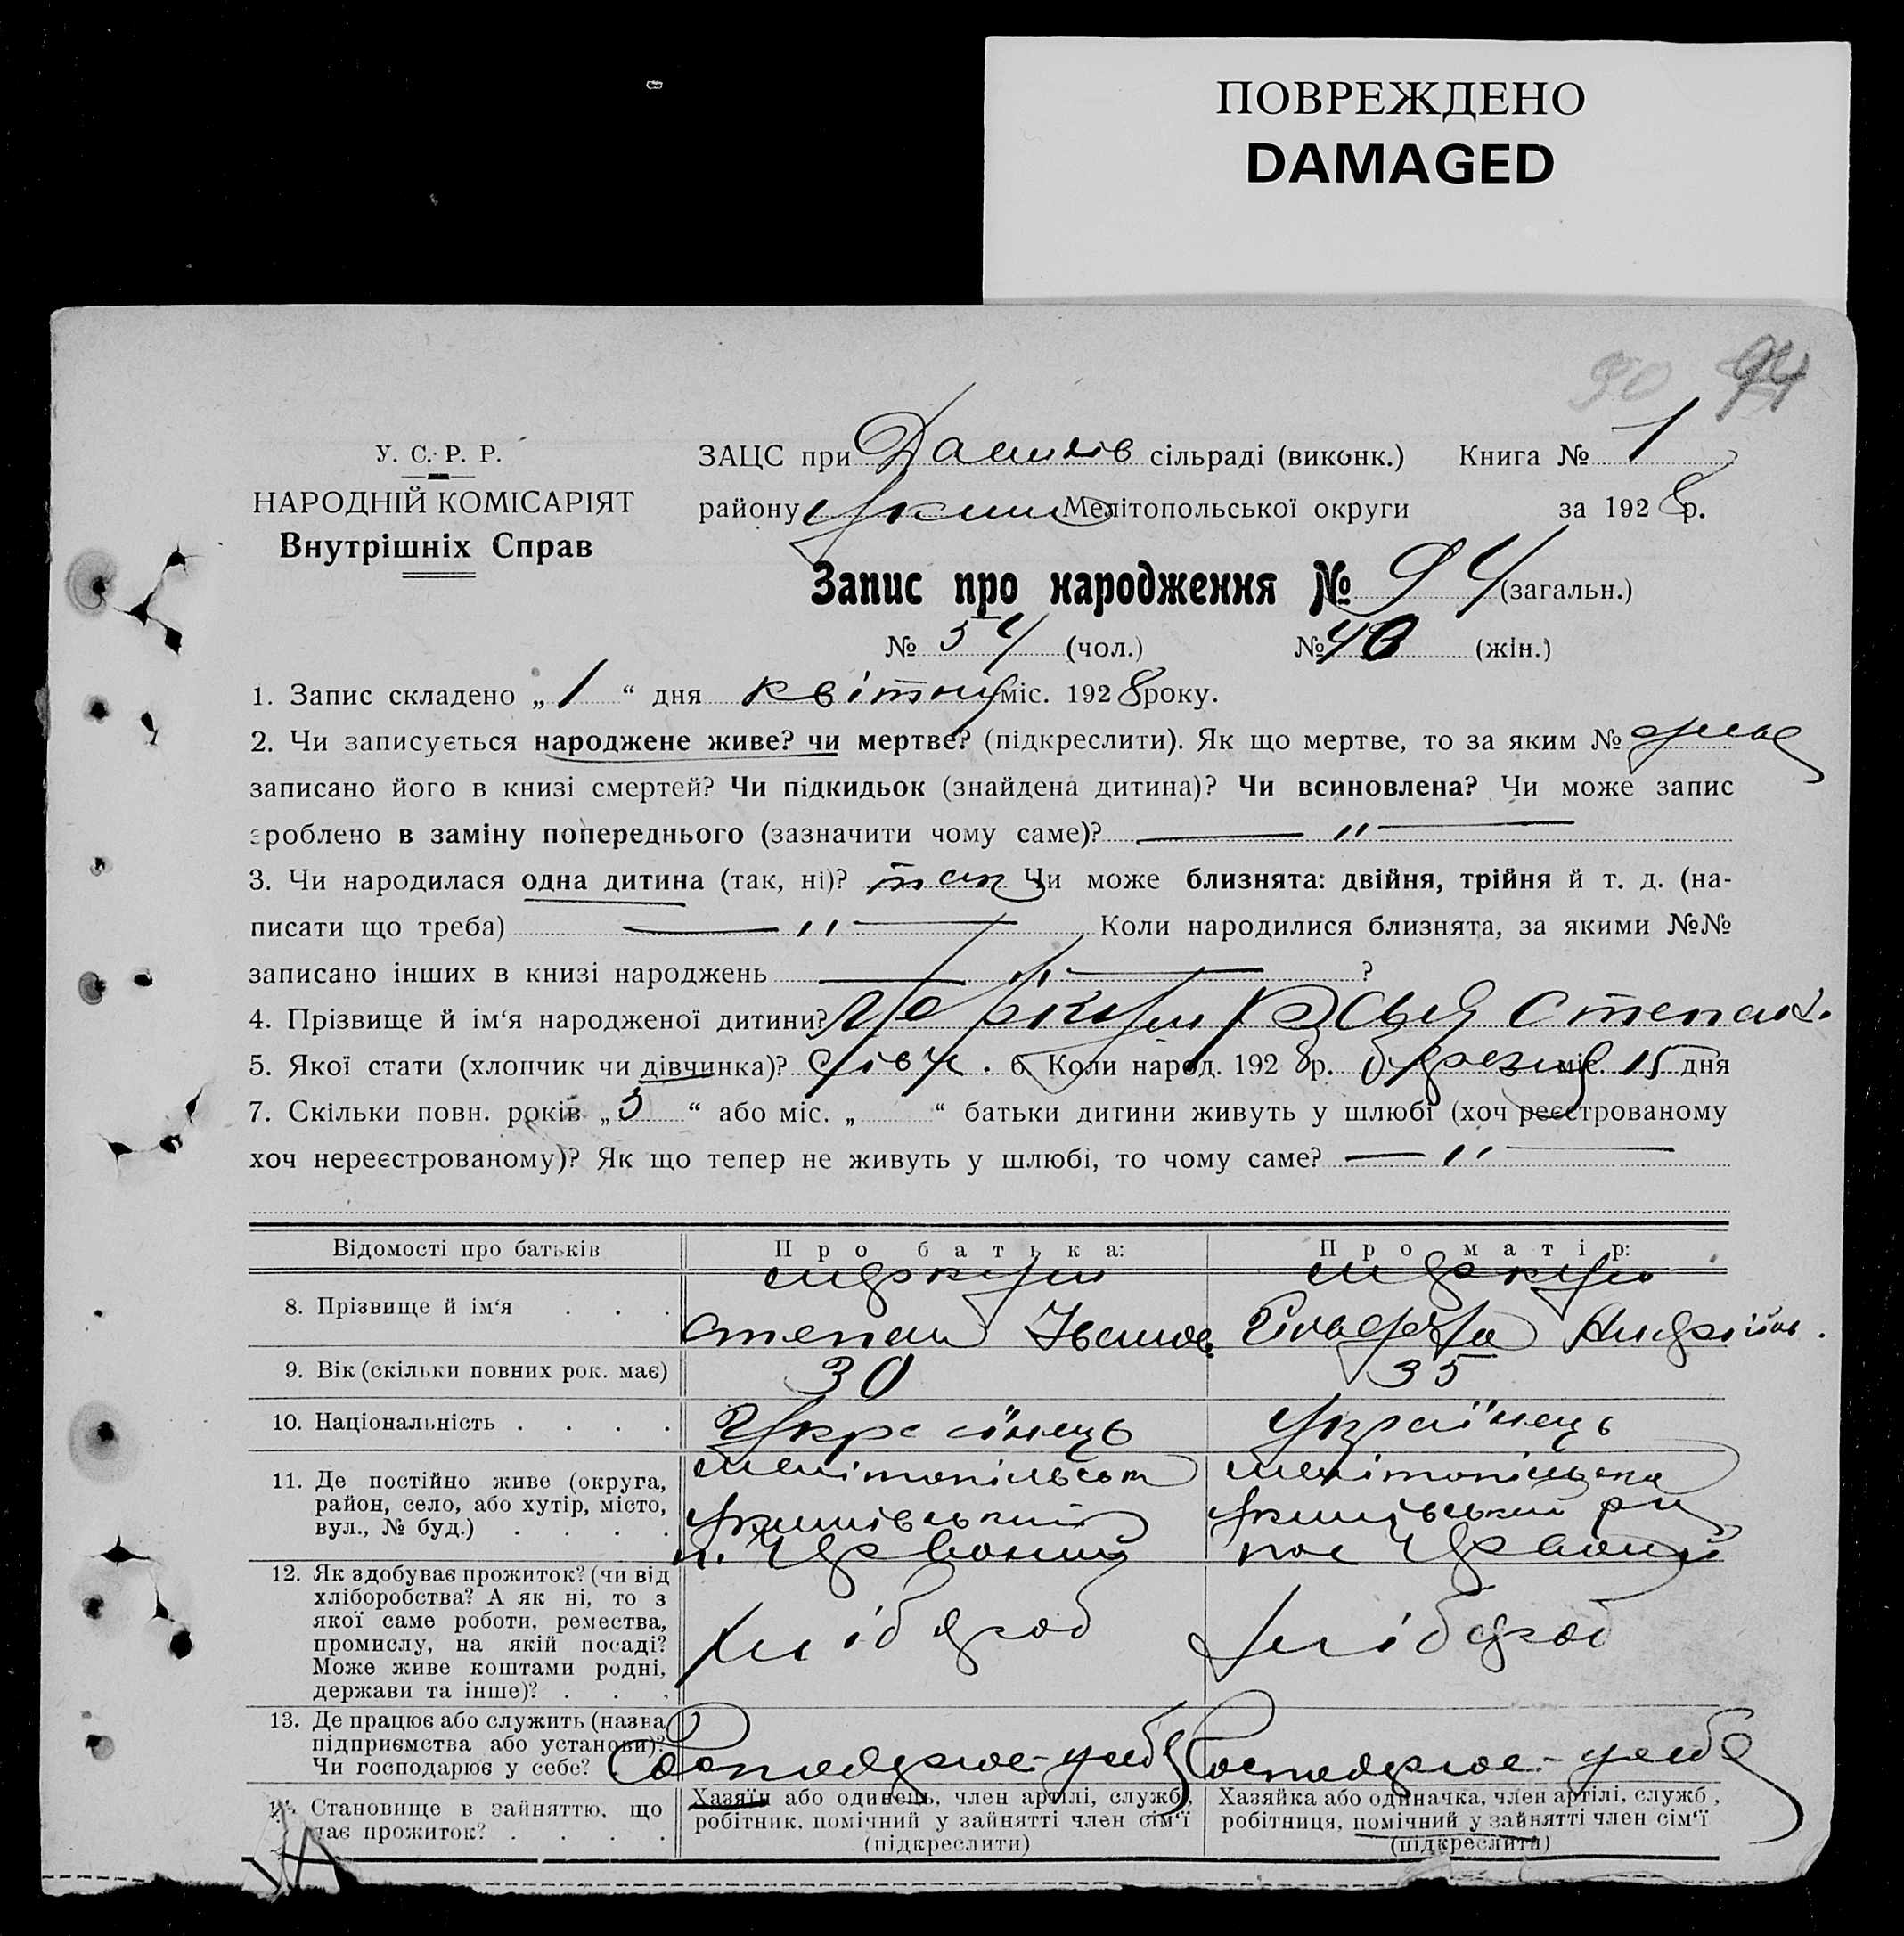 ПОВРЕЖДЕНО
DAMAGED
90 94
У. С. Р. Р.
НАРОДНІЙ КОМІСАРІЯТ
Внутрішніх Справ
ЗАЦС при сільраді (виконк.) Книга № 1
району Мелітопольської округи за 1928 р.
Запис про народження № 94 (загальн.)
№ 54 (чол.) № 40 (жін.)
1. Запис складено „ 1 “ дня квітня міс. 1928 року.
2. Чи записується народжене живе? чи мертве? (підкреслити). Як що мертве, то за яким №
записано його в книзі смертей? Чи підкидьок (знайдена дитина)? Чи всиновлена? Чи може запис
зроблено в заміну попереднього (зазначити чому саме)? — " —
3. Чи народилася одна дитина (так, ні)? так Чи може близнята: двійня, трійня й т. д. (на-
писати що треба) — " — Коли народилися близнята, за якими №№
записано інших в книзі народжень — " — ?
4. Прізвище й ім‘я народженої дитини? Степан.
5. Якої стати (хлопчик чи дівчинка)? дівч. 6. Коли народ. 1928 р. березня міс. 15 дня
7. Скільки повн. років „ 3 “ або міс. „ “ батьки дитини живуть у шлюбі (хоч реєстрованому
хоч нереєстрованому)? Як що тепер не живуть у шлюбі, то чому саме? — " —
Відомості про батьків Про батька: Про матір:
8. Прізвище й ім‘я . . . Степан Іванов. Андріїв.
9. Вік (скільки повних рок. має) 30 35
10. Національність . . . . Українець Українець
11. Де постійно живе (округа,
район, село, або хутір, місто,
вул., № буд.) . . . .
Мелітопільська
п. Червоний
Мелітопільська
пос Червоний
12. Як здобуває прожиток? (чи від
хліборобства? А як ні, то з
якої саме роботи, ремества,
промислу, на якій посаді?
Може живе коштами родні,
держави та інше)? . . .
хлібороб хлібороб
13. Де працює або служить (назва
підприємства або установи)?
Чи господарює у себе?
у себе у себе
14. Становище в зайняттю, що
дає прожиток? . . . .
Хазяїн або одинець, член артілі, служб.,
робітник, помічний у зайнятті член сім‘ї
(підкреслити)
Хазяйка або одиначка, член артілі, служб.,
робітниця, помічний у зайнятті член сім‘ї
(підкреслити)